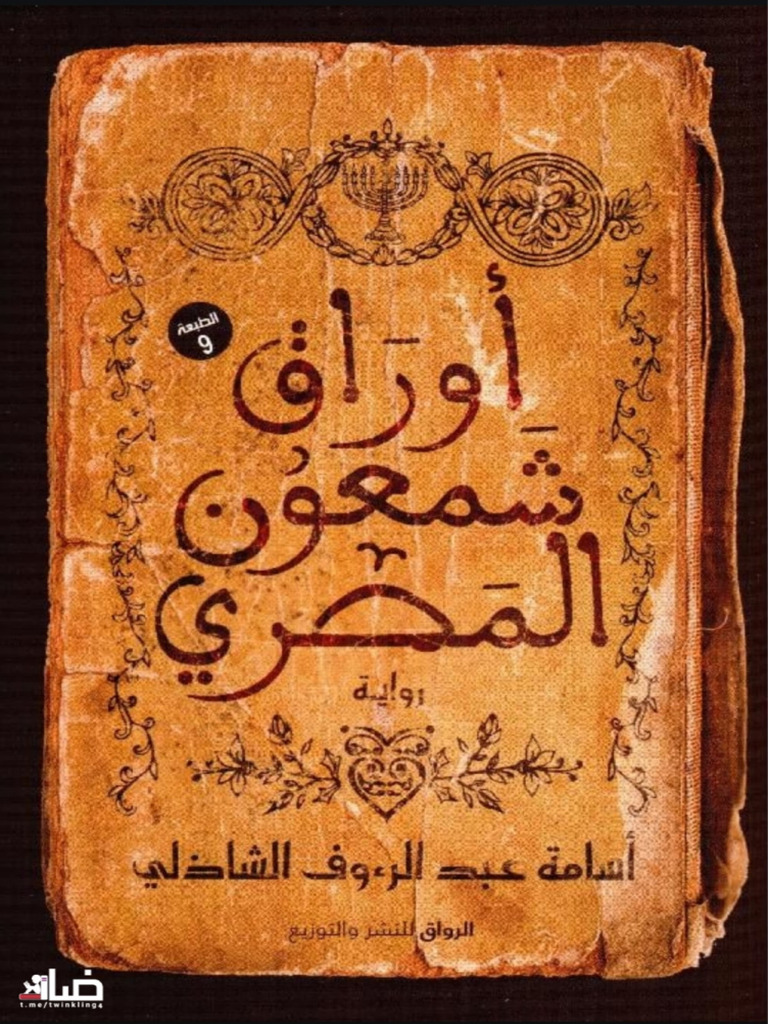 الطبعة
9
أَورَاق
شَمعُون
المَصري
رواية
أسامة عبد الرءوف الشاذلي
الرواق للنشر والتوزيع
ضاد
t.me/twinkling4